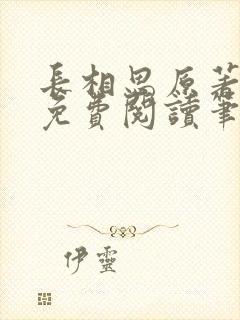 長相思原著
免費閱讀筆
伊靈